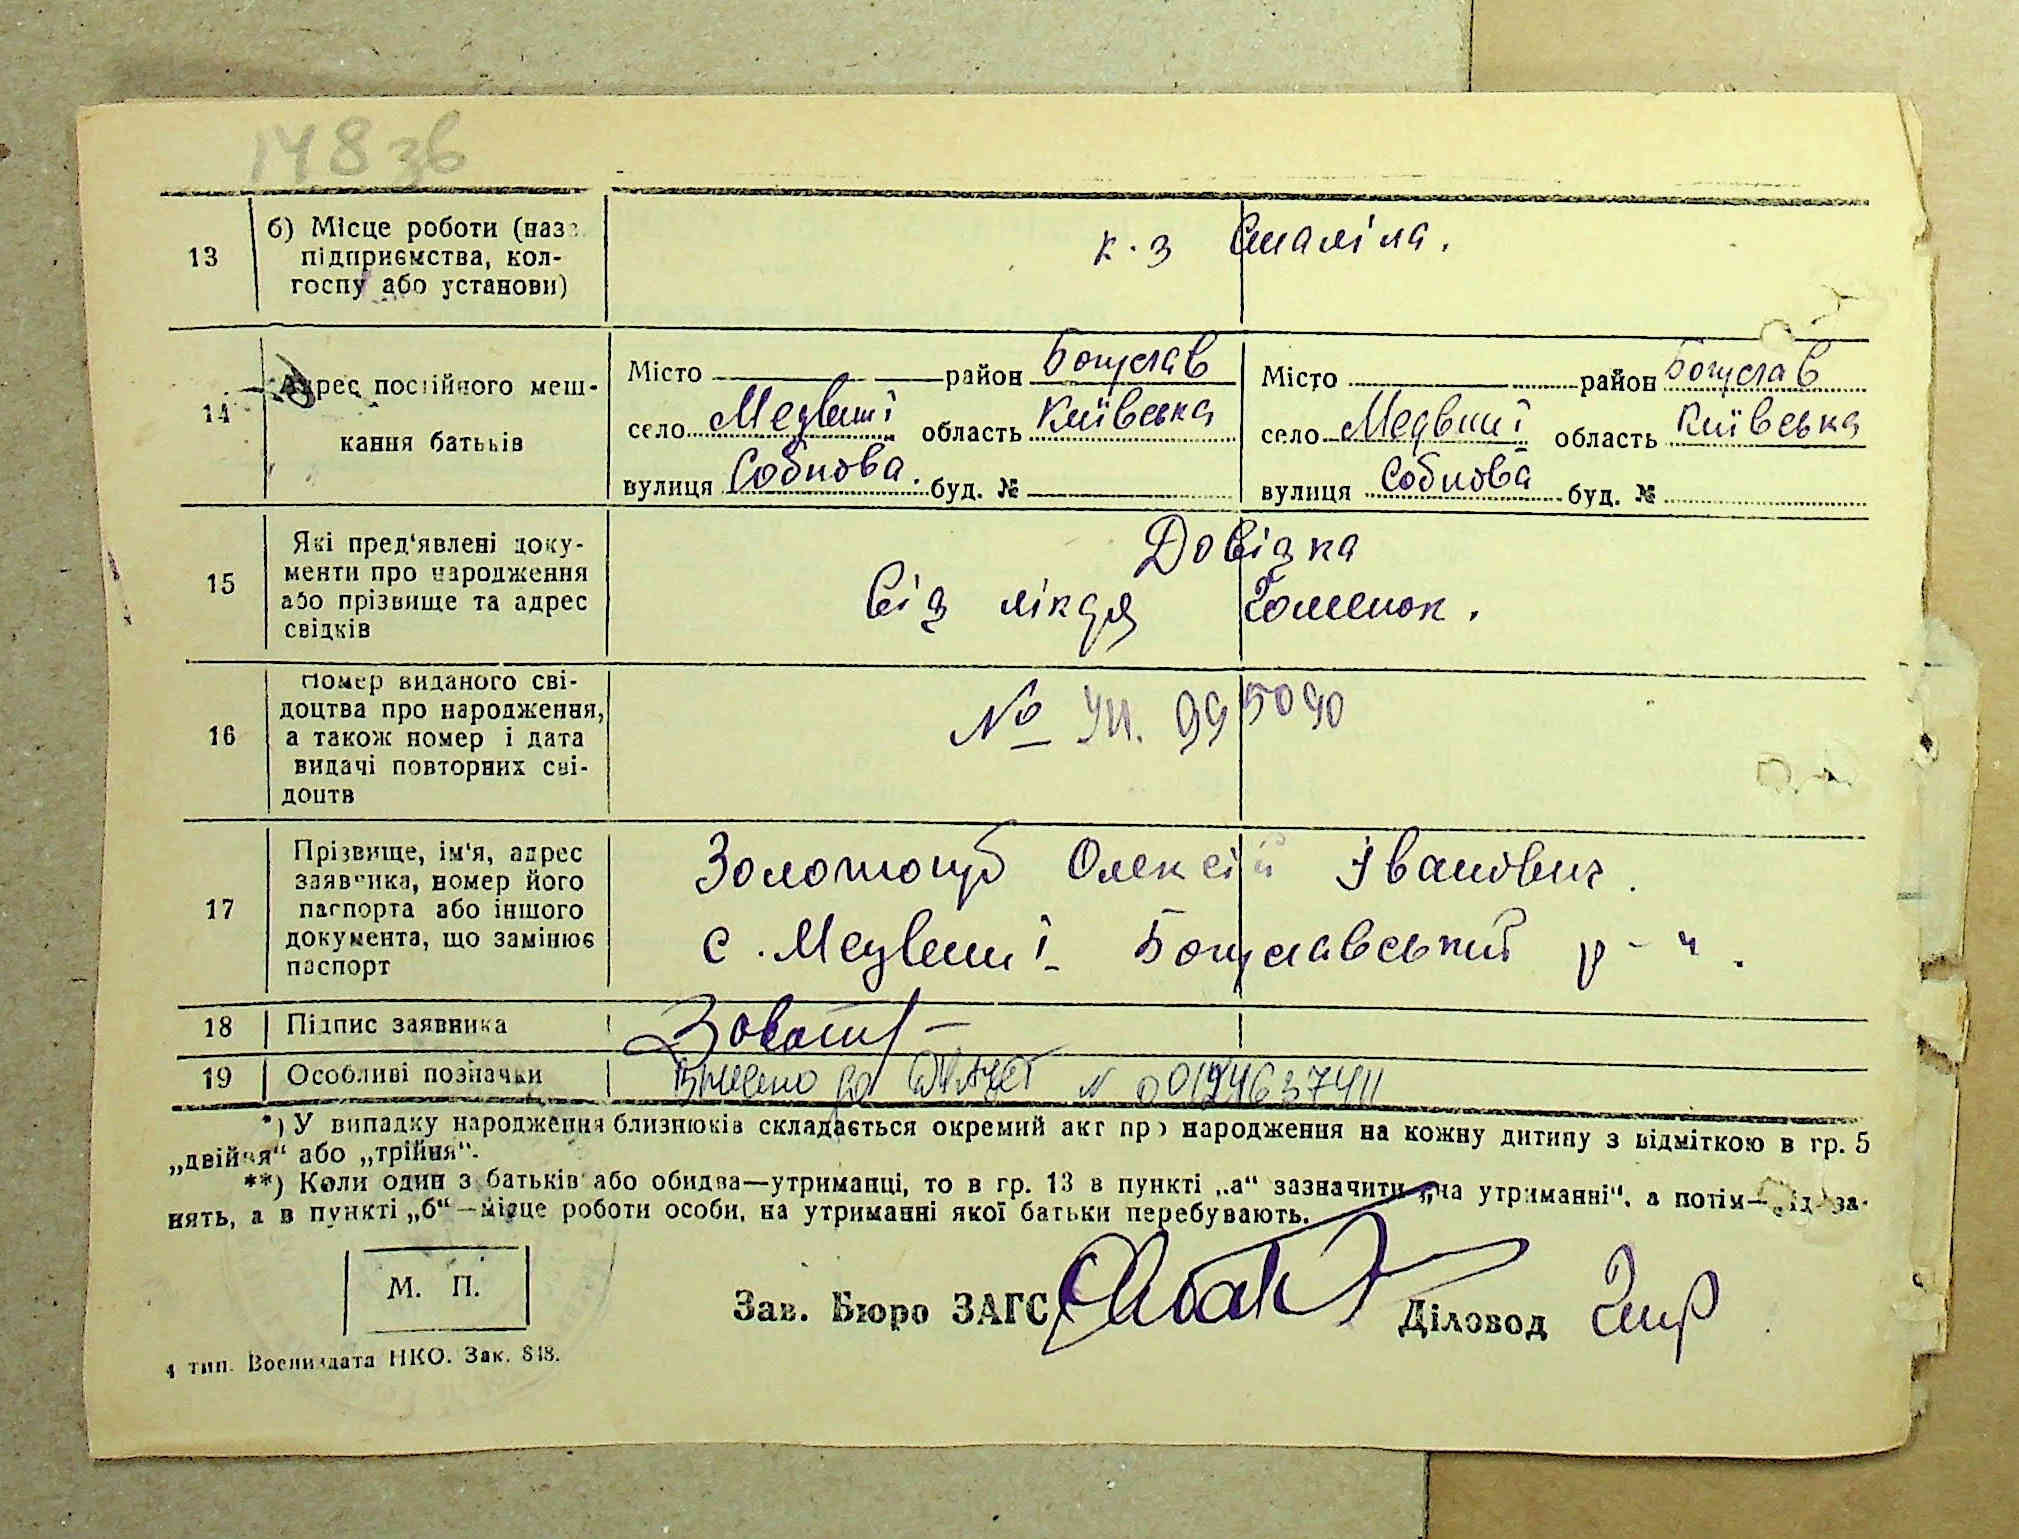 148 зв
13
б) Місце роботи (назв.
підприємства, кол-
госпу або установи)
к.з Сталіна.
14
Адрес постійного меш-
кання батьків
Місто район Богуслав
село Медвин і область Київська
вулиця буд. №
Місто район Богуслав
село Медвин і область Київська
вулиця буд. №
15
Які пред'явлені доку-
менти про народження
або прізвище та адрес
свідків
Довідка
Від лікаря
16
Номер виданого сві-
доцтва про народження,
а також номер і дата
видачі повторних сві-
доцтв
№ УИ. 995090
17
Прізвище, ім'я, адрес
заявника, номер його
паспорта або іншого
документа, що замінює
паспорт
Золотоцуб Олексій Іванович.
с. Медвин і Богуславський р-н.
18 Підпис заявника
19 Особливі позначки Внесено до ДРАЦСГ N 00124637411
*) У випадку народження близнюків складається окремий акт про народження на кожну дитину з відміткою в гр. 5
„двійня“ або „трійня“.
**) Коли один з батьків або обидва—утриманці, то в гр. 13 в пункті „а“ зазначити „на утриманні“, а потім—рід за-
нять, а в пункті „б“—місце роботи особи, на утриманні якої батьки перебувають.
М. П.
Зав. Бюро ЗАГС Діловод
4 тип. Воениздата НКО. Зак. 848.